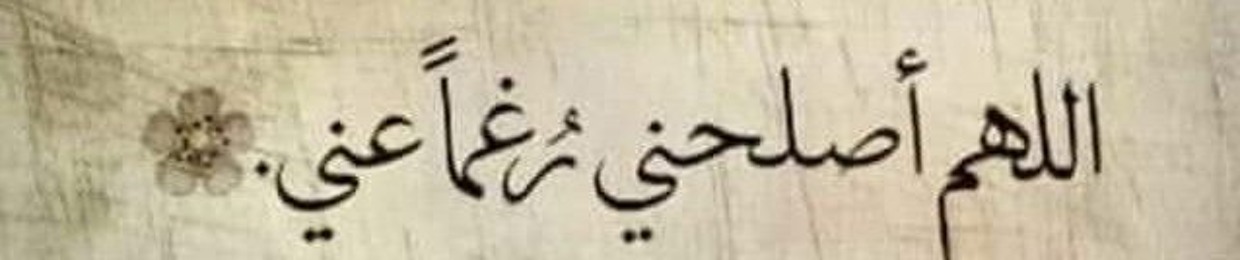 اللهم أصلحني رُغماً عني.